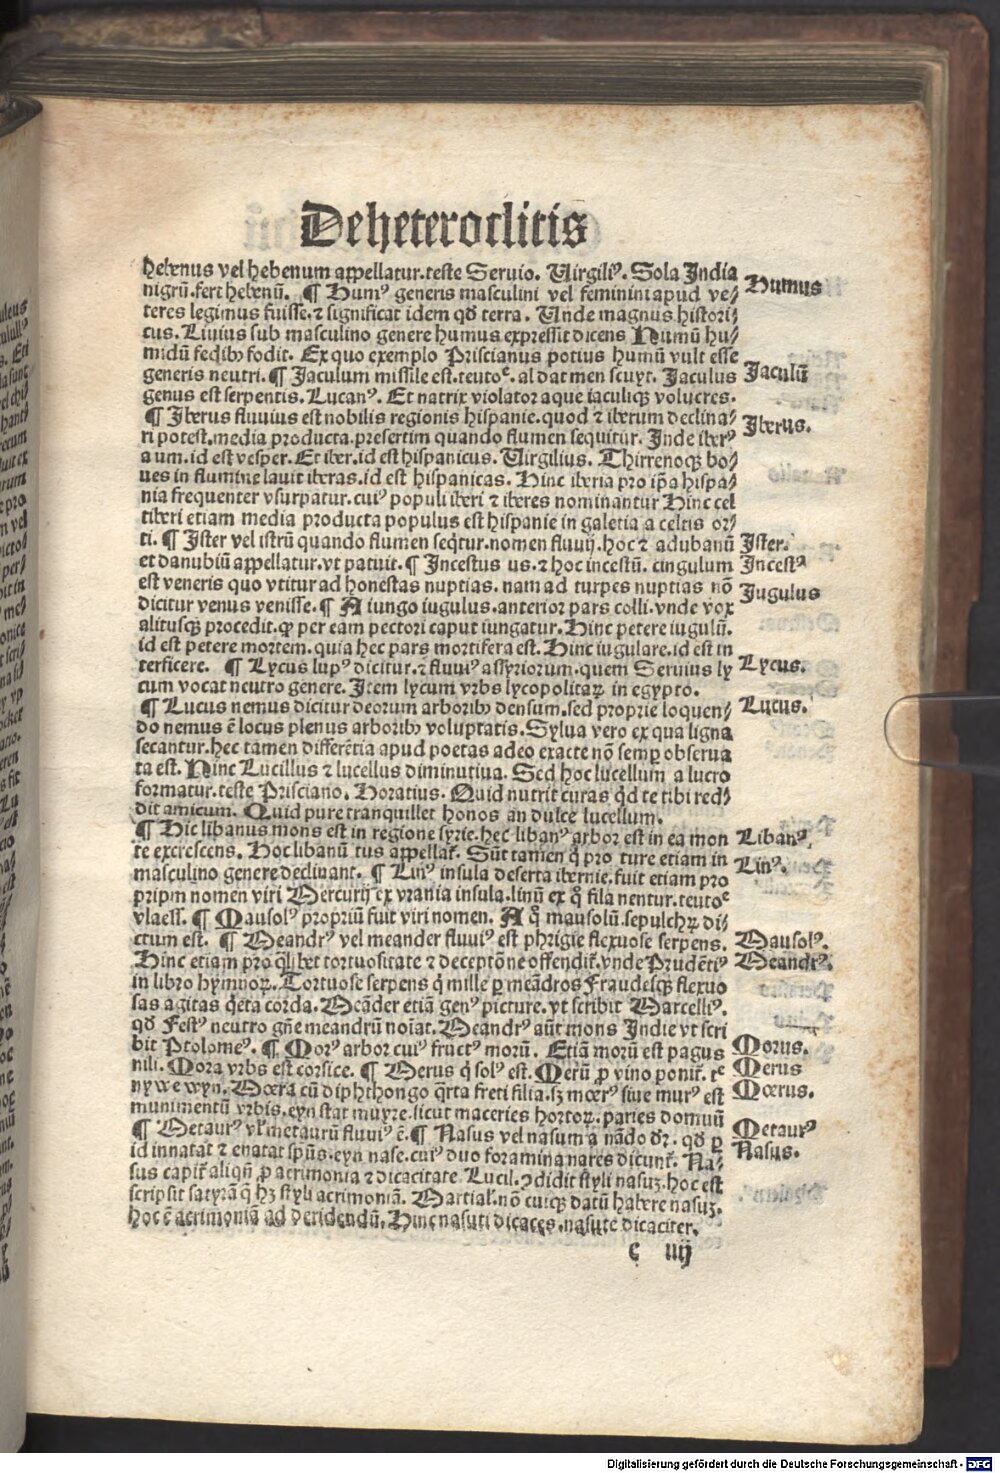 De heteroclitis
hebenus vel hebenum appellatur. teste Servio. Virgiliꝰ. Sola India
nigrū. fert hebenū. ¶ Humꝰ generis masculini vel feminini apud ve/
teres legimus fuisse. ⁊ significat idem qđ terra. Unde magnus histori/
cus. Livius sub masculino genere humus expressit dicens Humū hu/
midū pedibꝰ fodit. Ex quo exemplo Priscianus potius humū vult esse
generis neutri. ¶ Jaculum missile est. teutoᶜ. al dat men scuyt. Jaculus
genus est serpentis. Lucanꝰ. Et natrix violator aque iaculiqꝫ volucres.
¶ Iberus fluvius est nobilis regionis hispanie. quod ⁊ iberum declina/
ri potest. media producta. presertim quando flumen sequitur. Inde iberꝰ
a um. id est vesper. Et iber. id est hispanicus. Virgilius. Thirrenoqꝫ bo/
ves in flumine lavit iberas. id est hispanicas. Hinc iberia pro ip̄a hispa/
nia frequenter vsurpatur. cuiꝰ populi iberi ⁊ iberes nominantur Hinc cel
tiberi etiam media producta populus est hispanie in galetia a celtis or/
ti. ¶ Ister vel istrū quando flumen seqͥtur. nomen fluvij. hoc ⁊ adubanū
et danubiū appellatur. vt patuit. ¶ Incestus us. ⁊ hoc incestū. cingulum
est veneris quo vtitur ad honestas nuptias. nam ad turpes nuptias nō
dicitur venus venisse. ¶ A iungo iugulus. anterior pars colli. vnde vox
alitusqꝫ procedit. ꝙ per eam pectori caput iungatur. Hinc petere iugulū.
id est petere mortem. quia hec pars mortifera est. Hinc iugulare. id est in
terficere. ¶ Lycus lupꝰ dicitur. ⁊ fluviꝰ assyriorum. quem Servius ly
cum vocat neutro genere. Item lycum vrbs lycopolitaꝝ in egypto.
¶ Lucus nemus dicitur deorum arboribꝰ densum. sed proprie loquen/
do nemus ē locus plenus arboribꝰ voluptatis. Sylua vero ex qua ligna
secantur. hec tamen differētia apud poetas adeo exacte nō semꝑ observa
ta est. Hinc Lucillus ⁊ lucellus diminutiua. Sed hoc lucellum a lucro
formatur. teste Prisciano. Horatius. Quid nutrit curas qͥd te tibi red/
dit amicum. Quid pure tranquillet honos an dulce lucellum.
¶ Hic libanus mons est in regione syrie. hec libanꝰ arbor est in ea mon
te excrescens. Hoc libanū tus appellat᷑. Sūt tamen qͥ pro ture etiam in
masculino genere declinant. ¶ Linꝰ insula deserta ibernie. fuit etiam pro
pripm nomen viri Mercurij ex vrania insula. linū ex qͦ fila nentur. teutoᶜ
vlaess. ¶ Mausolꝰ propriū fuit viri nomen. A qͦ mausolū. sepulchꝝ di/
ctum est. ¶ Meandrꝰ vel meander fluviꝰ est phrigie flexuose serpens.
Hinc etiam pro qͣlibet tortuositate ⁊ deceptōne offendit᷑. vnde Prudētiꝰ
in libro hymnoꝝ. Tortuose serpens qͥ mille ꝑ meādros Fraudesqꝫ flexuo
sas agitas qͥeta corda. Meāder etiā genꝰ picture. vt scribit Marcellꝰ.
qđ Festꝰ neutro gn̄e meandrū noīat. Meandrꝰ aūt mons Indie vt scri
bit Ptolomeꝰ. ¶ Morꝰ arbor cuiꝰ fructꝰ morū. Etiā morū est pagus
nili. Mora vrbs est corsice. ¶ Merus qͥ solꝰ est. Merū ꝓ vino ponit᷑. tᶜ
nywe wyn. Mœra cū diphthongo qͣrta freti filia. sꝫ mœrꝰ siue murꝰ est
munimentū vrbis. eyn stat muyre. sicut maceries hortoꝝ. paries domuū
¶ Metaurꝰ vl᷑ metaurū fluviꝰ ē. ¶ Nasus vel nasum a nādo dr᷑. qđ ꝑ
id innatat ⁊ enatat spūs. eyn nase. cuiꝰ duo foramina nares dicunt᷑. Na/
sus capit᷑ aliqn̄ ꝓ acrimonia ⁊ dicacitate Lucil. ↄdidit styli nasuꝫ. hoc est
scripsit satyrā qͥ hꝫ styli acrimoniā. Martial᷑. nō cuiqꝫ datū habere nasuꝫ.
hoc ē acrimoniā ad deridendū. Hinc nasuti dicaces. nasute dicaciter.
c iiij
Humus
Jaculū
Iberus.
Ister.
Incestꝰ
Jugulus
Lycus.
Lucus.
Libanꝰ.
Linꝰ.
Mausolꝰ.
Meandrꝰ.
Morus.
Merus
Mœrus.
Metaurꝰ
Nasus.
Digitalisierung gefördert durch die Deutsche Forschungsgemeinschaft - DFG